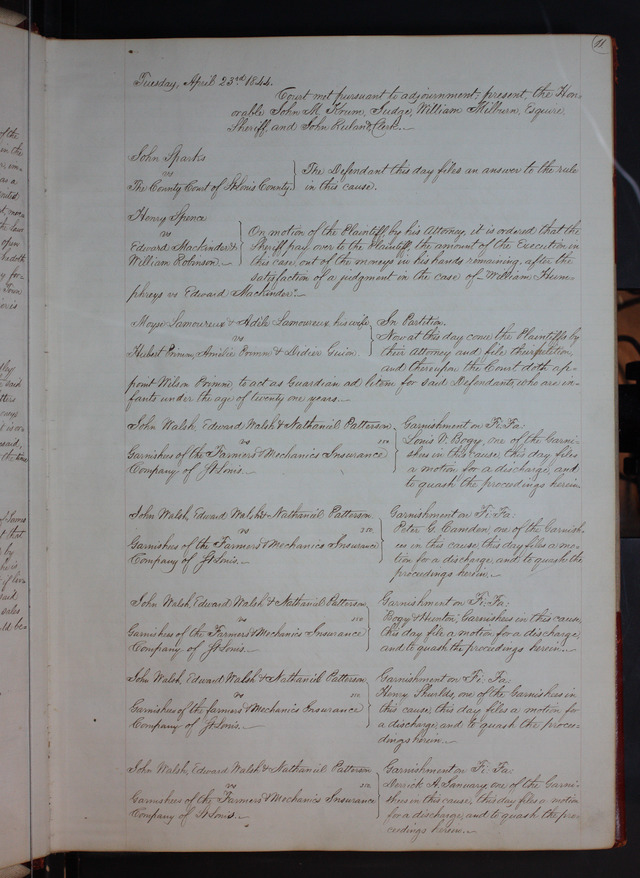 11
Tuesday, April 23rd 1844.
Court met pursuant to adjournment; present, the Hon-
orable John M. Krum, Judge, William Milburn, Esquire,
Sheriff, and John Ruland, Clerk.
John Sparks
vs
The County Court of St. Louis County.
The Defendant this day files an answer to the rule
in this cause.
Henry Spence
vs
Edward Mackinder &
William Robinson.
On motion of the Plaintiff, by his Attorney, it is ordered that the
Sheriff pay over to the Plaintiff, the amount of the Execution in
this case, out of the moneys in his hands remaining, after the
satisfaction of a judgment in the case of William Hum-
phreys vs Edward Mackinder.
Moyse Lamoureux & Adile Lamoureux his wife
vs
Hubert Primm, Amilie Primm & Didier Guion.
In Partition.
Now at this day come the Plaintiffs by
their Attorney and file their petition,
and thereupon the Court doth ap-
point Wilson Primm to act as Guardian ad litem for said Defendants, who are in-
fants under the age of twenty one years.
John Walsh, Edward Walsh & Nathaniel Patterson
vs
Garnishees of the Farmers & Mechanics Insurance
Company of St. Louis.
Garnishment on Fi: Fa:
Louis V. Bogy, one of the Garni-
shees in this cause, this day files
a motion for a discharge, and
to quash the proceedings herein.
John Walsh, Edward Walsh & Nathaniel Patterson
vs
Garnishees of the Farmers & Mechanics Insurance
Company of St. Louis.
Garnishment on Fi: Fa:
Peter G. Camden, one of the Garnish-
ees in this cause, this day files a mo-
tion for a discharge, and to quash the
proceedings herein.
John Walsh, Edward Walsh & Nathaniel Patterson
vs
Garnishees of the Farmers & Mechanics Insurance
Company of St. Louis.
Garnishment on Fi: Fa:
Bogy & Hunton, Garnishees in this cause,
this day file a motion for a discharge,
and to quash the proceedings herein.
John Walsh, Edward Walsh & Nathaniel Patterson
vs
Garnishees of the Farmers & Mechanics Insurance
Company of St. Louis.
Garnishment on Fi: Fa:
Henry Shields, one of the Garnishees in
this cause, this day files a motion for
a discharge, and to quash the procee-
dings herein.
John Walsh, Edward Walsh & Nathaniel Patterson
vs
Garnishees of the Farmers & Mechanics Insurance
Company of St. Louis.
Garnishment on Fi: Fa:
Derrick A. January, one of the Garni-
shees in this cause, this day files a motion
for a discharge, and to quash the pro-
ceedings herein.